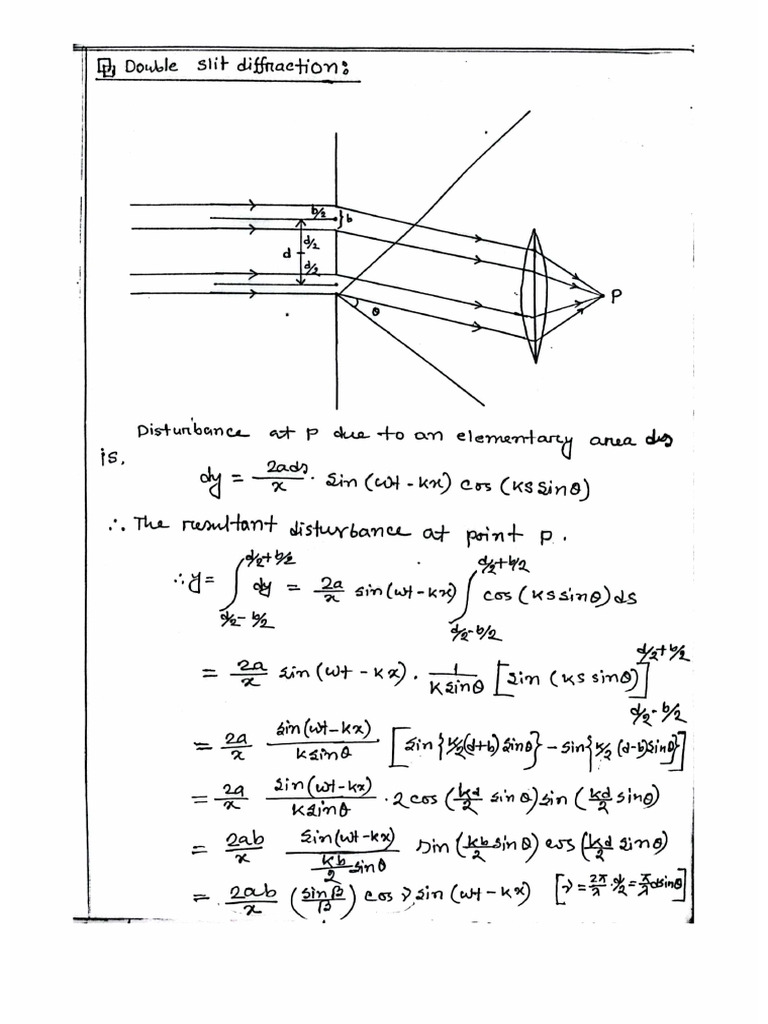 Double slit diffraction:
b/2
b
d/2
d
d/2
θ
P
Disturbance at P due to an elementary area ds
is,
dy = 2ads/x · sin(ωt - kx) cos(KS sinθ)
∴ The resultant disturbance at point P.
∴ y = ∫_{d/2 - b/2}^{d/2 + b/2} dy = 2a/x sin(ωt - kx) ∫_{d/2 - b/2}^{d/2 + b/2} cos(KS sinθ) ds
= 2a/x sin(ωt - kx) · 1/(K sinθ) [sin(KS sinθ)]_{d/2 - b/2}^{d/2 + b/2}
= 2a/x sin(ωt - kx)/(K sinθ) [sin{K/2 (d+b) sinθ} - sin{K/2 (d-b) sinθ}]
= 2a/x sin(ωt - kx)/(K sinθ) · 2 cos(kd/2 sinθ) sin(kd/2 sinθ)
= 2ab/x sin(ωt - kx)/(kb/2 sinθ) sin(kb/2 sinθ) cos(kd/2 sinθ)
= 2ab/x (sinβ/β) cos γ sin(ωt - kx) [γ = 2π/λ · d/2 = π/λ d sinθ]